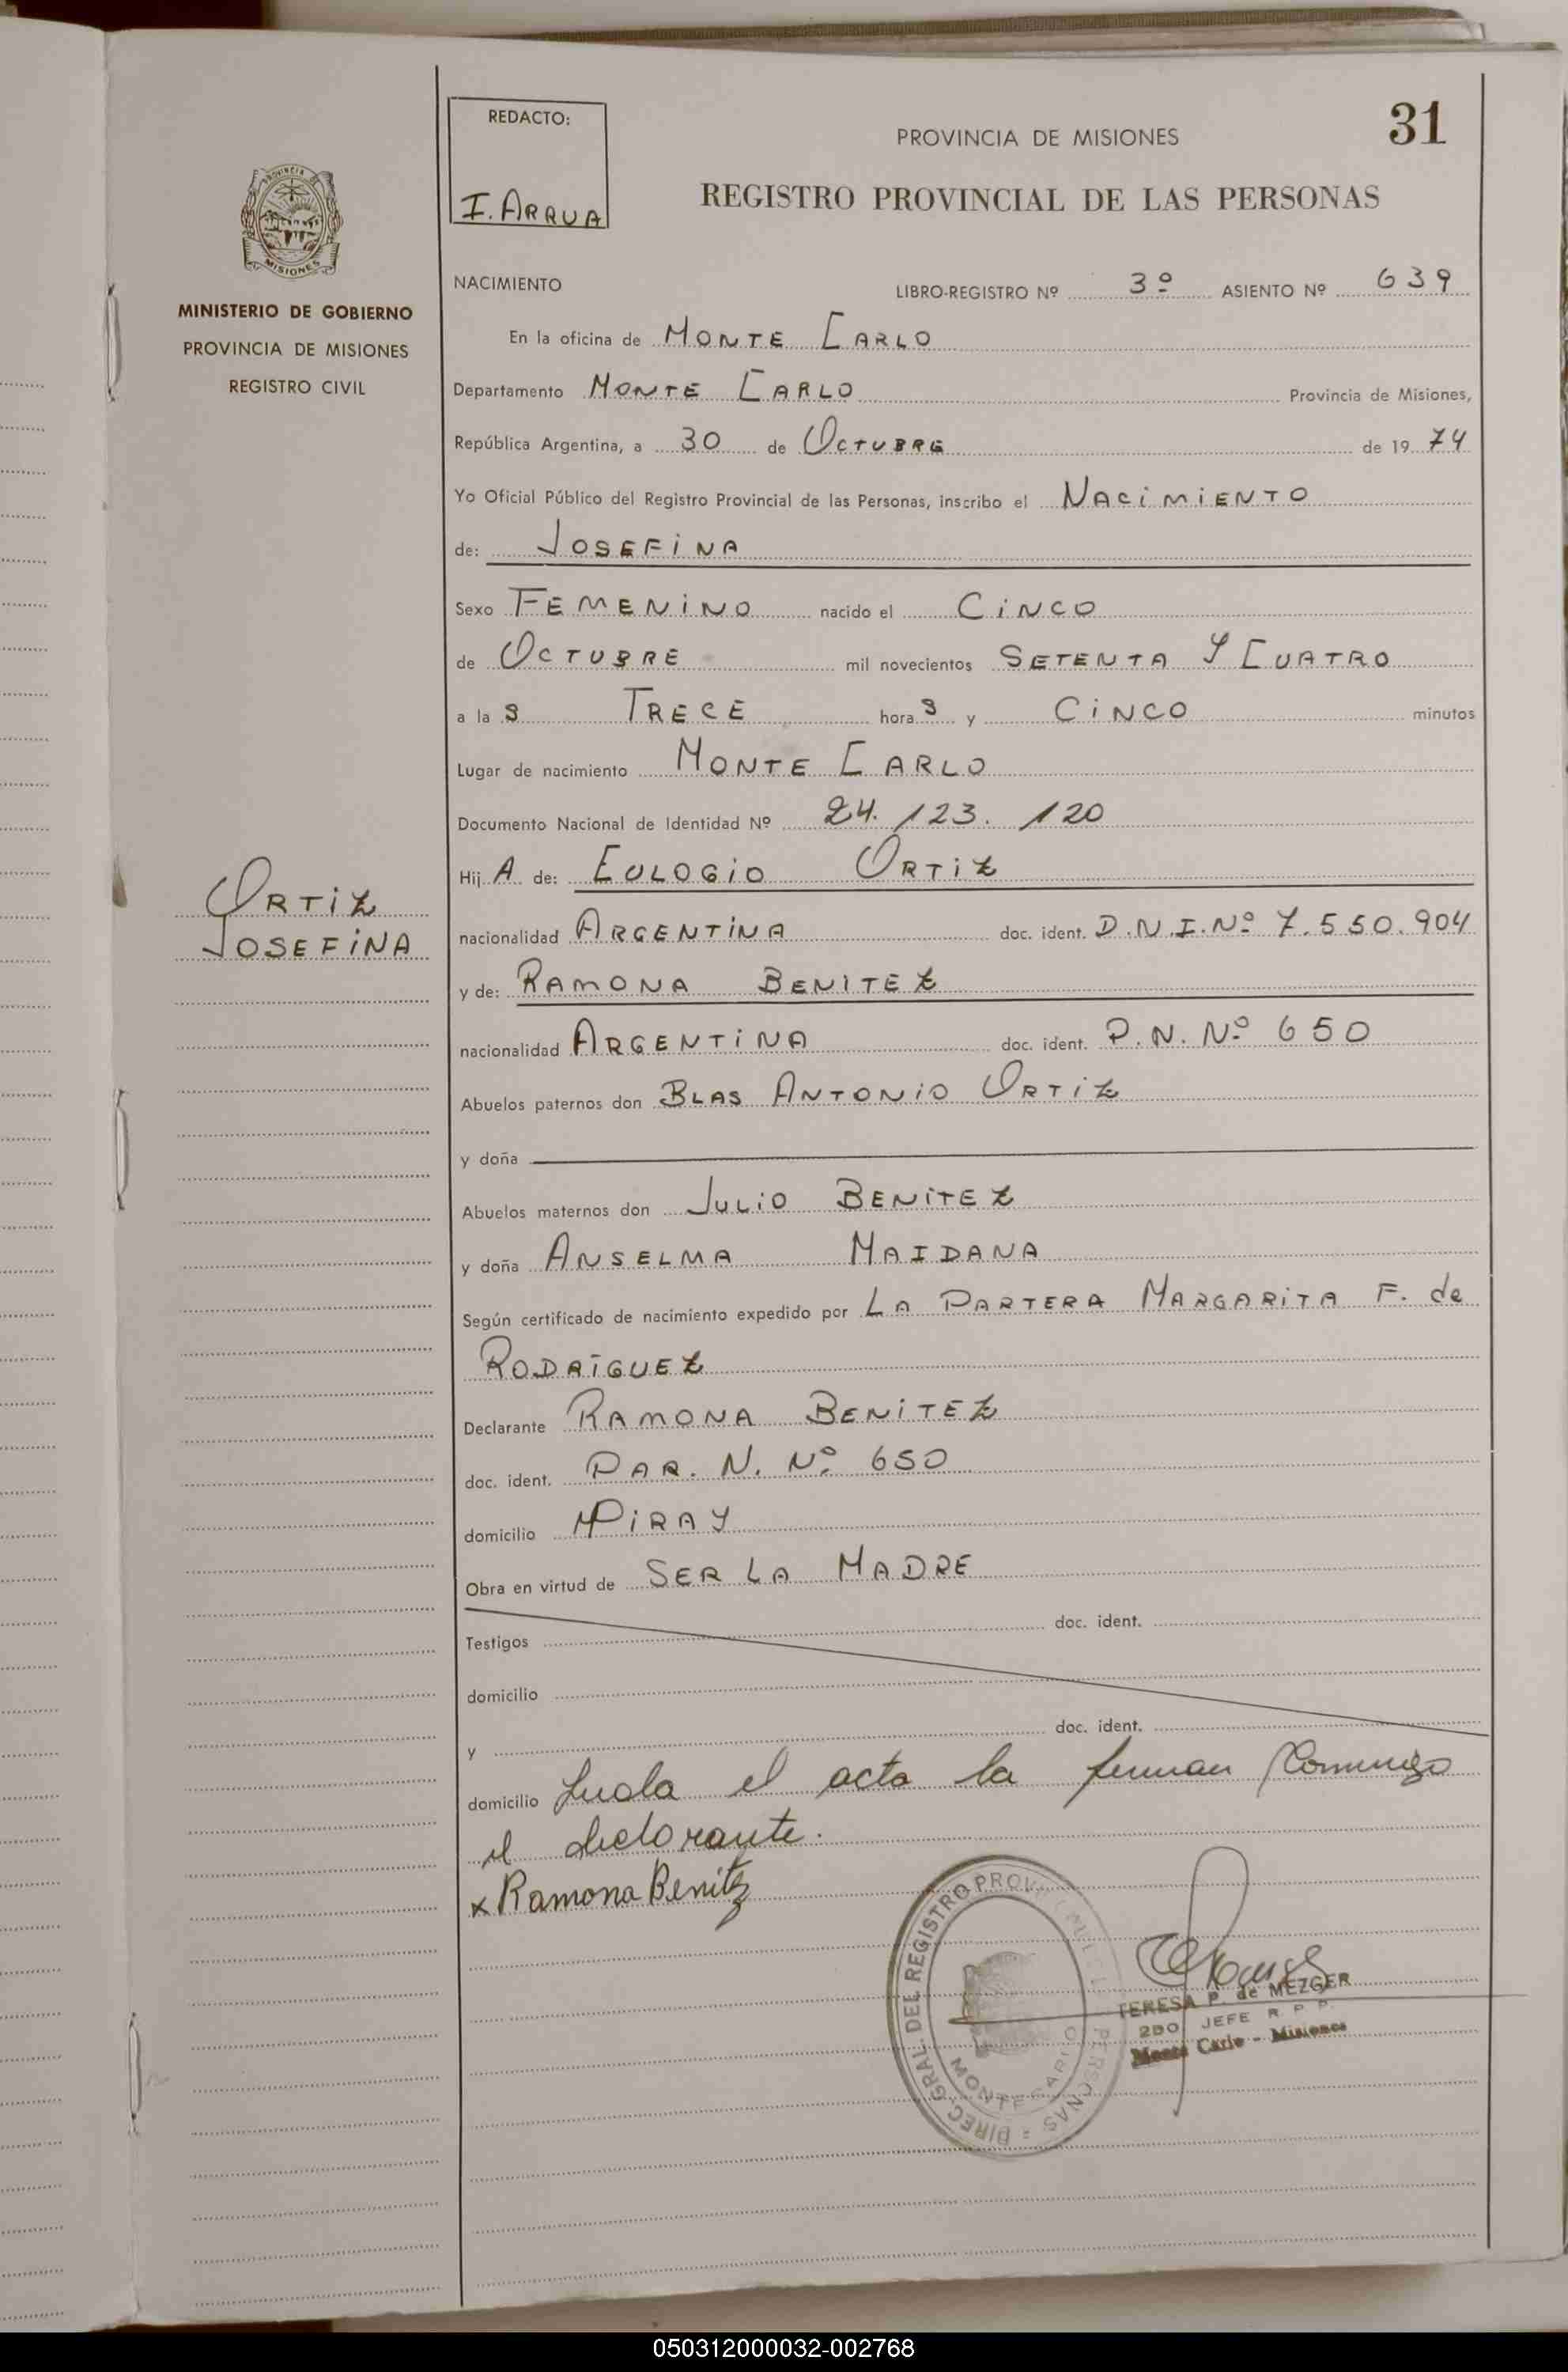 REDACTO:
I. ARRUA
PROVINCIA DE MISIONES
31
REGISTRO PROVINCIAL DE LAS PERSONAS
PROVINCIA DE
MISIONES
MINISTERIO DE GOBIERNO
PROVINCIA DE MISIONES
REGISTRO CIVIL
NACIMIENTO
LIBRO-REGISTRO Nº 3º ASIENTO Nº 639
En la oficina de MONTE CARLO
Departamento MONTE CARLO Provincia de Misiones,
República Argentina, a 30 de OCTUBRE de 19 74
Yo Oficial Público del Registro Provincial de las Personas, inscribo el NACIMIENTO
de: JOSEFINA
Sexo FEMENINO nacido el CINCO
de OCTUBRE mil novecientos SETENTA Y CUATRO
a la S TRECE hora S y CINCO minutos
Lugar de nacimiento MONTE CARLO
Documento Nacional de Identidad Nº 24.123.120
Hij A de: EULOGIO ORTIZ
ORTIZ
JOSEFINA
nacionalidad ARGENTINA doc. ident. D.N.I.Nº 7.550.904
y de: RAMONA BENITEZ
nacionalidad ARGENTINA doc. ident. P.N. Nº 650
Abuelos paternos don BLAS ANTONIO ORTIZ
y doña
Abuelos maternos don JULIO BENITEZ
y doña ANSELMA MAIDANA
Según certificado de nacimiento expedido por LA PARTERA MARGARITA F. de
RODRÍGUEZ
Declarante RAMONA BENITEZ
doc. ident. PAR. N. Nº 650
domicilio PIRAY
Obra en virtud de SER LA MADRE
Testigos doc. ident.
domicilio
y doc. ident.
domicilio Leida el acta la firman Conmigo
el declarante.
x Ramona Benitz
DIREC. GRAL. DEL REGISTRO PROVINCIAL PERSONAS
MONTE CARLO
TERESA P. de MEZGER
2DO JEFE R. P. P.
Monte Carlo - Misiones
050312000032-002768